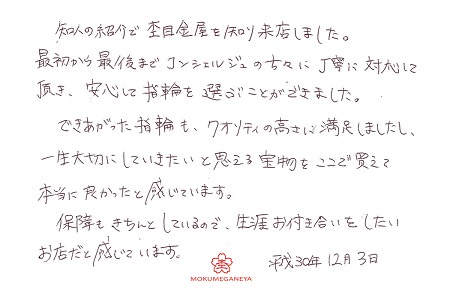 知人の紹介で杢目金屋を知り来店しました。
最初から最後までコンシェルジュの方々に丁寧に対応して
頂き、安心して指輪を選ぶことができました。
できあがった指輪も、クオリティの高さに満足しましたし、
一生大切にしていきたいと思える宝物をここで買えて
本当に良かったと感じています。
保障もきちんとしているので、生涯お付き合いをしたい
お店だと感じています。
平成30年12月3日
MOKUMEGANEYA